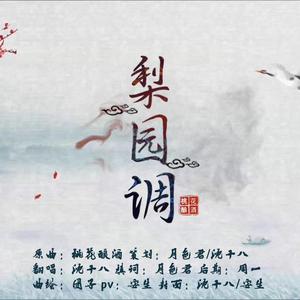 梨园调
桃花
酿酒
原曲：桃花酿酒 策划：月色君/沈千八
翻唱：沈千八 填词：月色君 后期：周一
曲绘：团子 pv：安生 封面：沈千八/安生